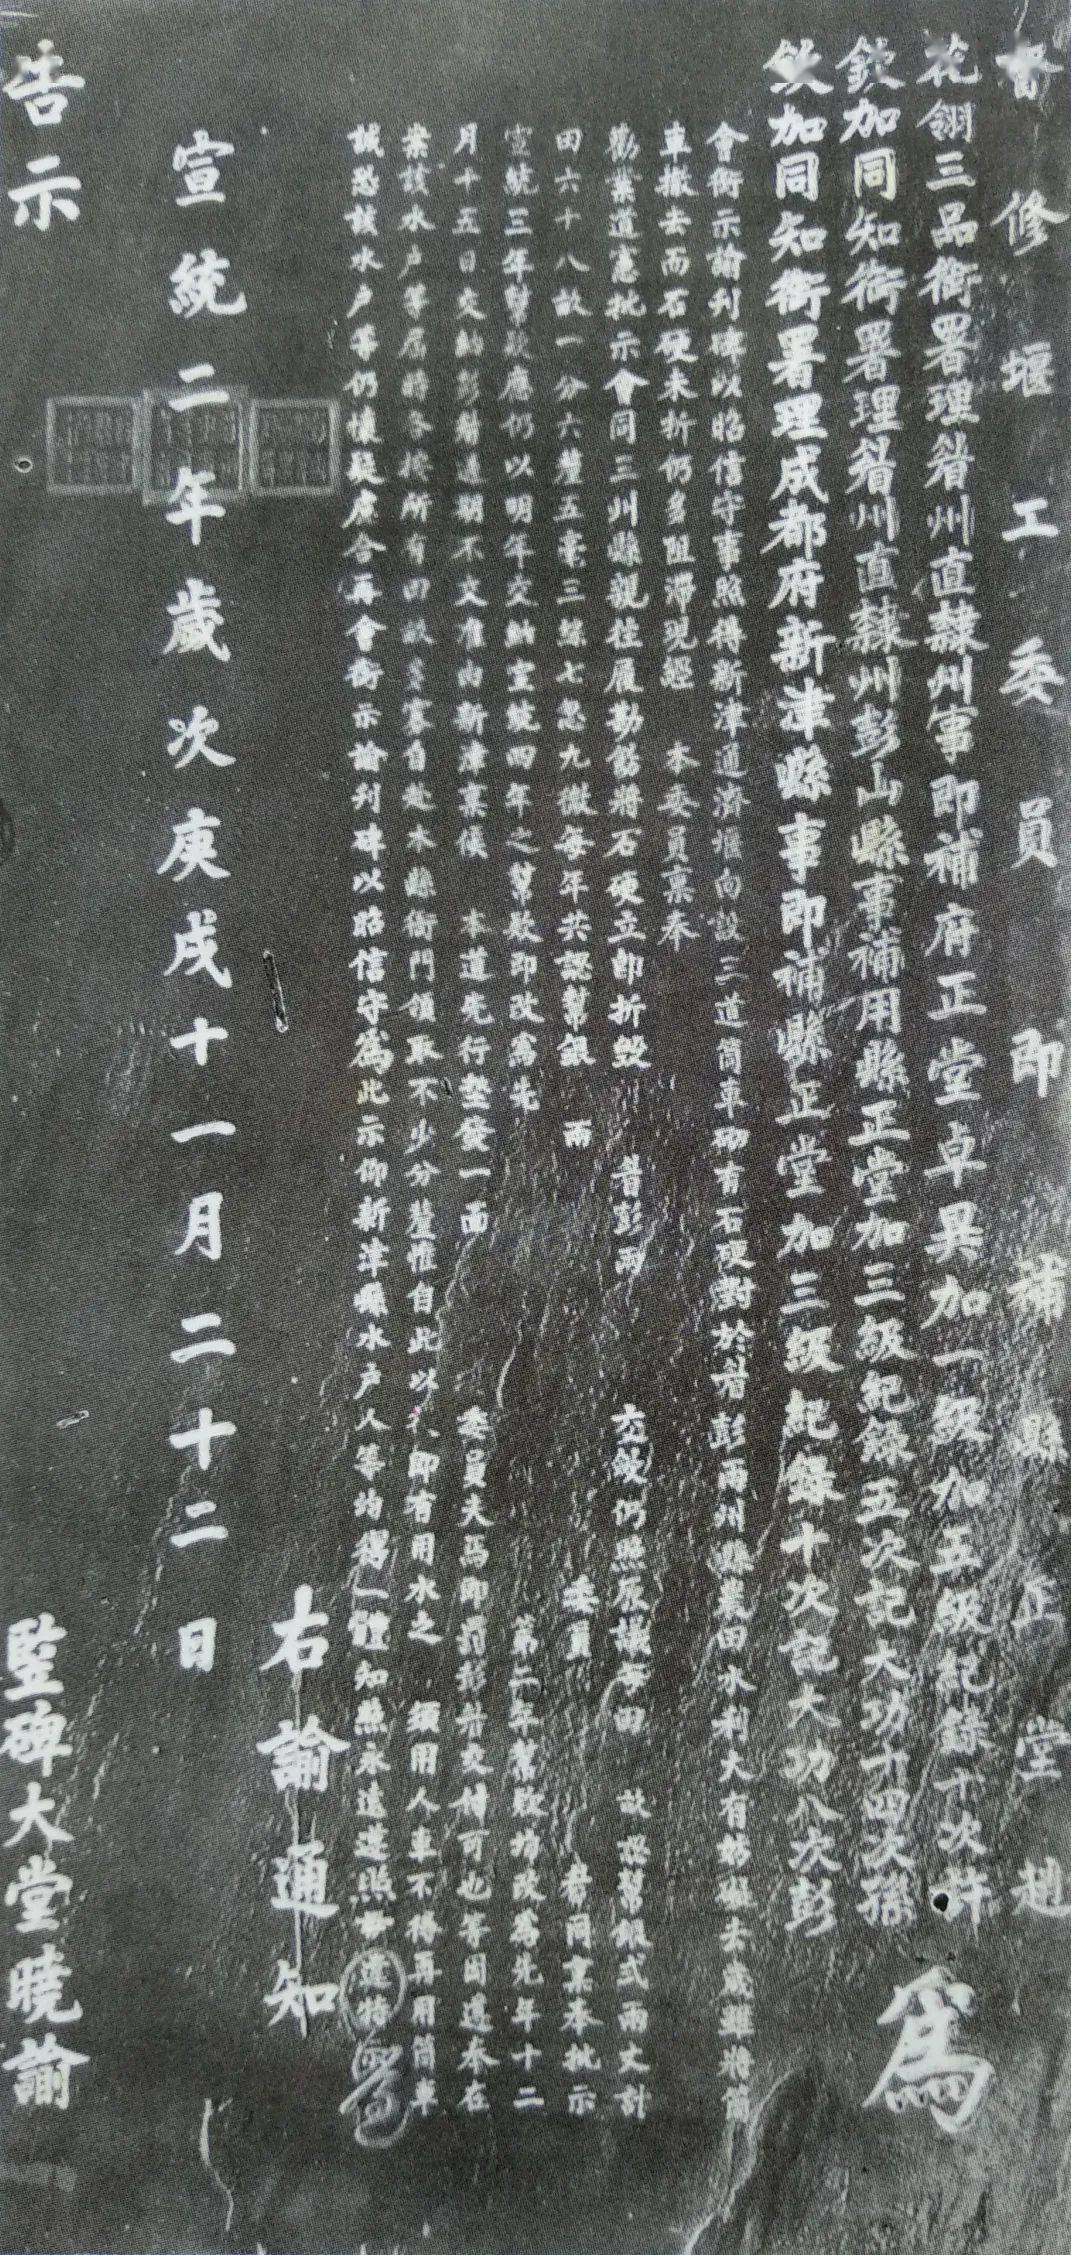 督修堰工委員即補縣正堂趙
花翎三品銜署理眉州直隸州事即補府正堂卓異加一級加五級紀錄十次許
欽加同知銜署理眉州直隸州彭山縣事補用縣正堂加三級紀錄五次記大功十四次孫
欽加同知銜署理成都府新津縣事即補縣正堂加三級紀錄十次記大功八次彭
為
會銜示諭刊碑以昭信守事照得新津通濟堰向設三道筒車砌有石硬對於眉彭兩州縣農田水利大有妨礙去歲雖將筒
車撤去而石硬未折仍多阻滯現經 本委員稟奉
勸業道憲批示會同三州縣親往履勘飭將石硬立即折毀 眉彭兩 交緩仍照原議每田 故 幫銀式兩文計
田六十八故一分六釐五毫三絲七忽九微每年共認幫銀 兩 委員 眷同稟奉批示
宣統三年幫款應仍以明年交納宣統四年之幫款即改為先 第二年幫款均改為先年十二
月十五日交納彭眉逾期不交准由新津稟候 本道先行墊發一面 委員夫馬即 彭眉交補可也等因遵奉在
案該水戶等屆時各按所有田故多寡自赴本縣衙門領取不少分釐惟自此以 即有用水之 須用人車不得再用筒車
誠恐該水戶等仍懷疑慮合再會銜示諭刊碑以昭信守為此示仰新津縣水戶人等均得一體知照永遠遵照毋違特
右諭通知
宣統二年歲次庚戌十一月二十二日
告示
監碑大堂曉諭